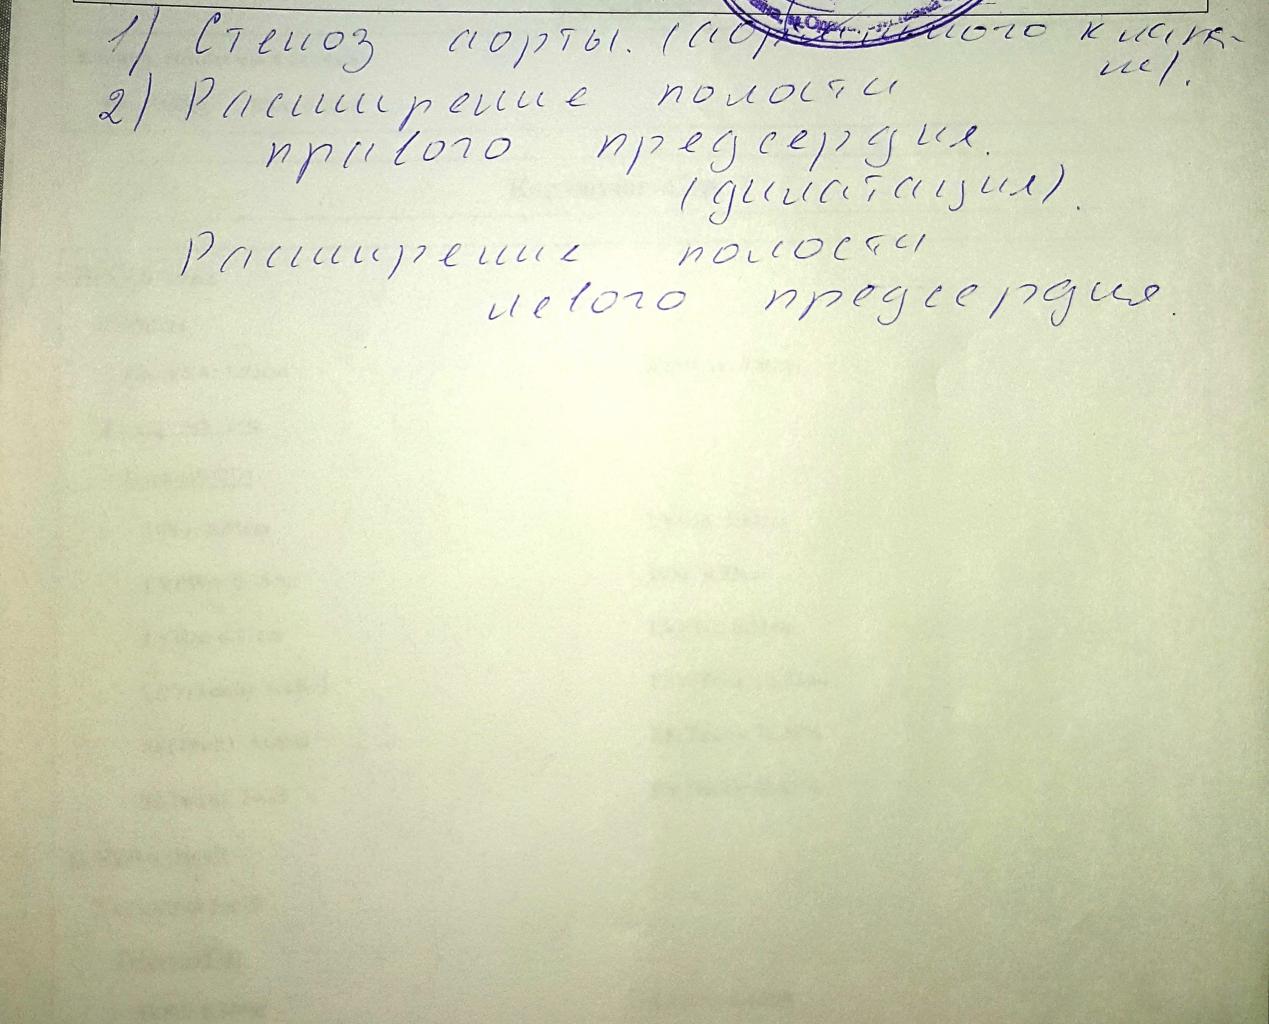 1) Стеноз аорты. (аортального клапа-
на).
2) Расширение полости
правого предсердия.
(дилатация).
Расширение полости
левого предсердия.